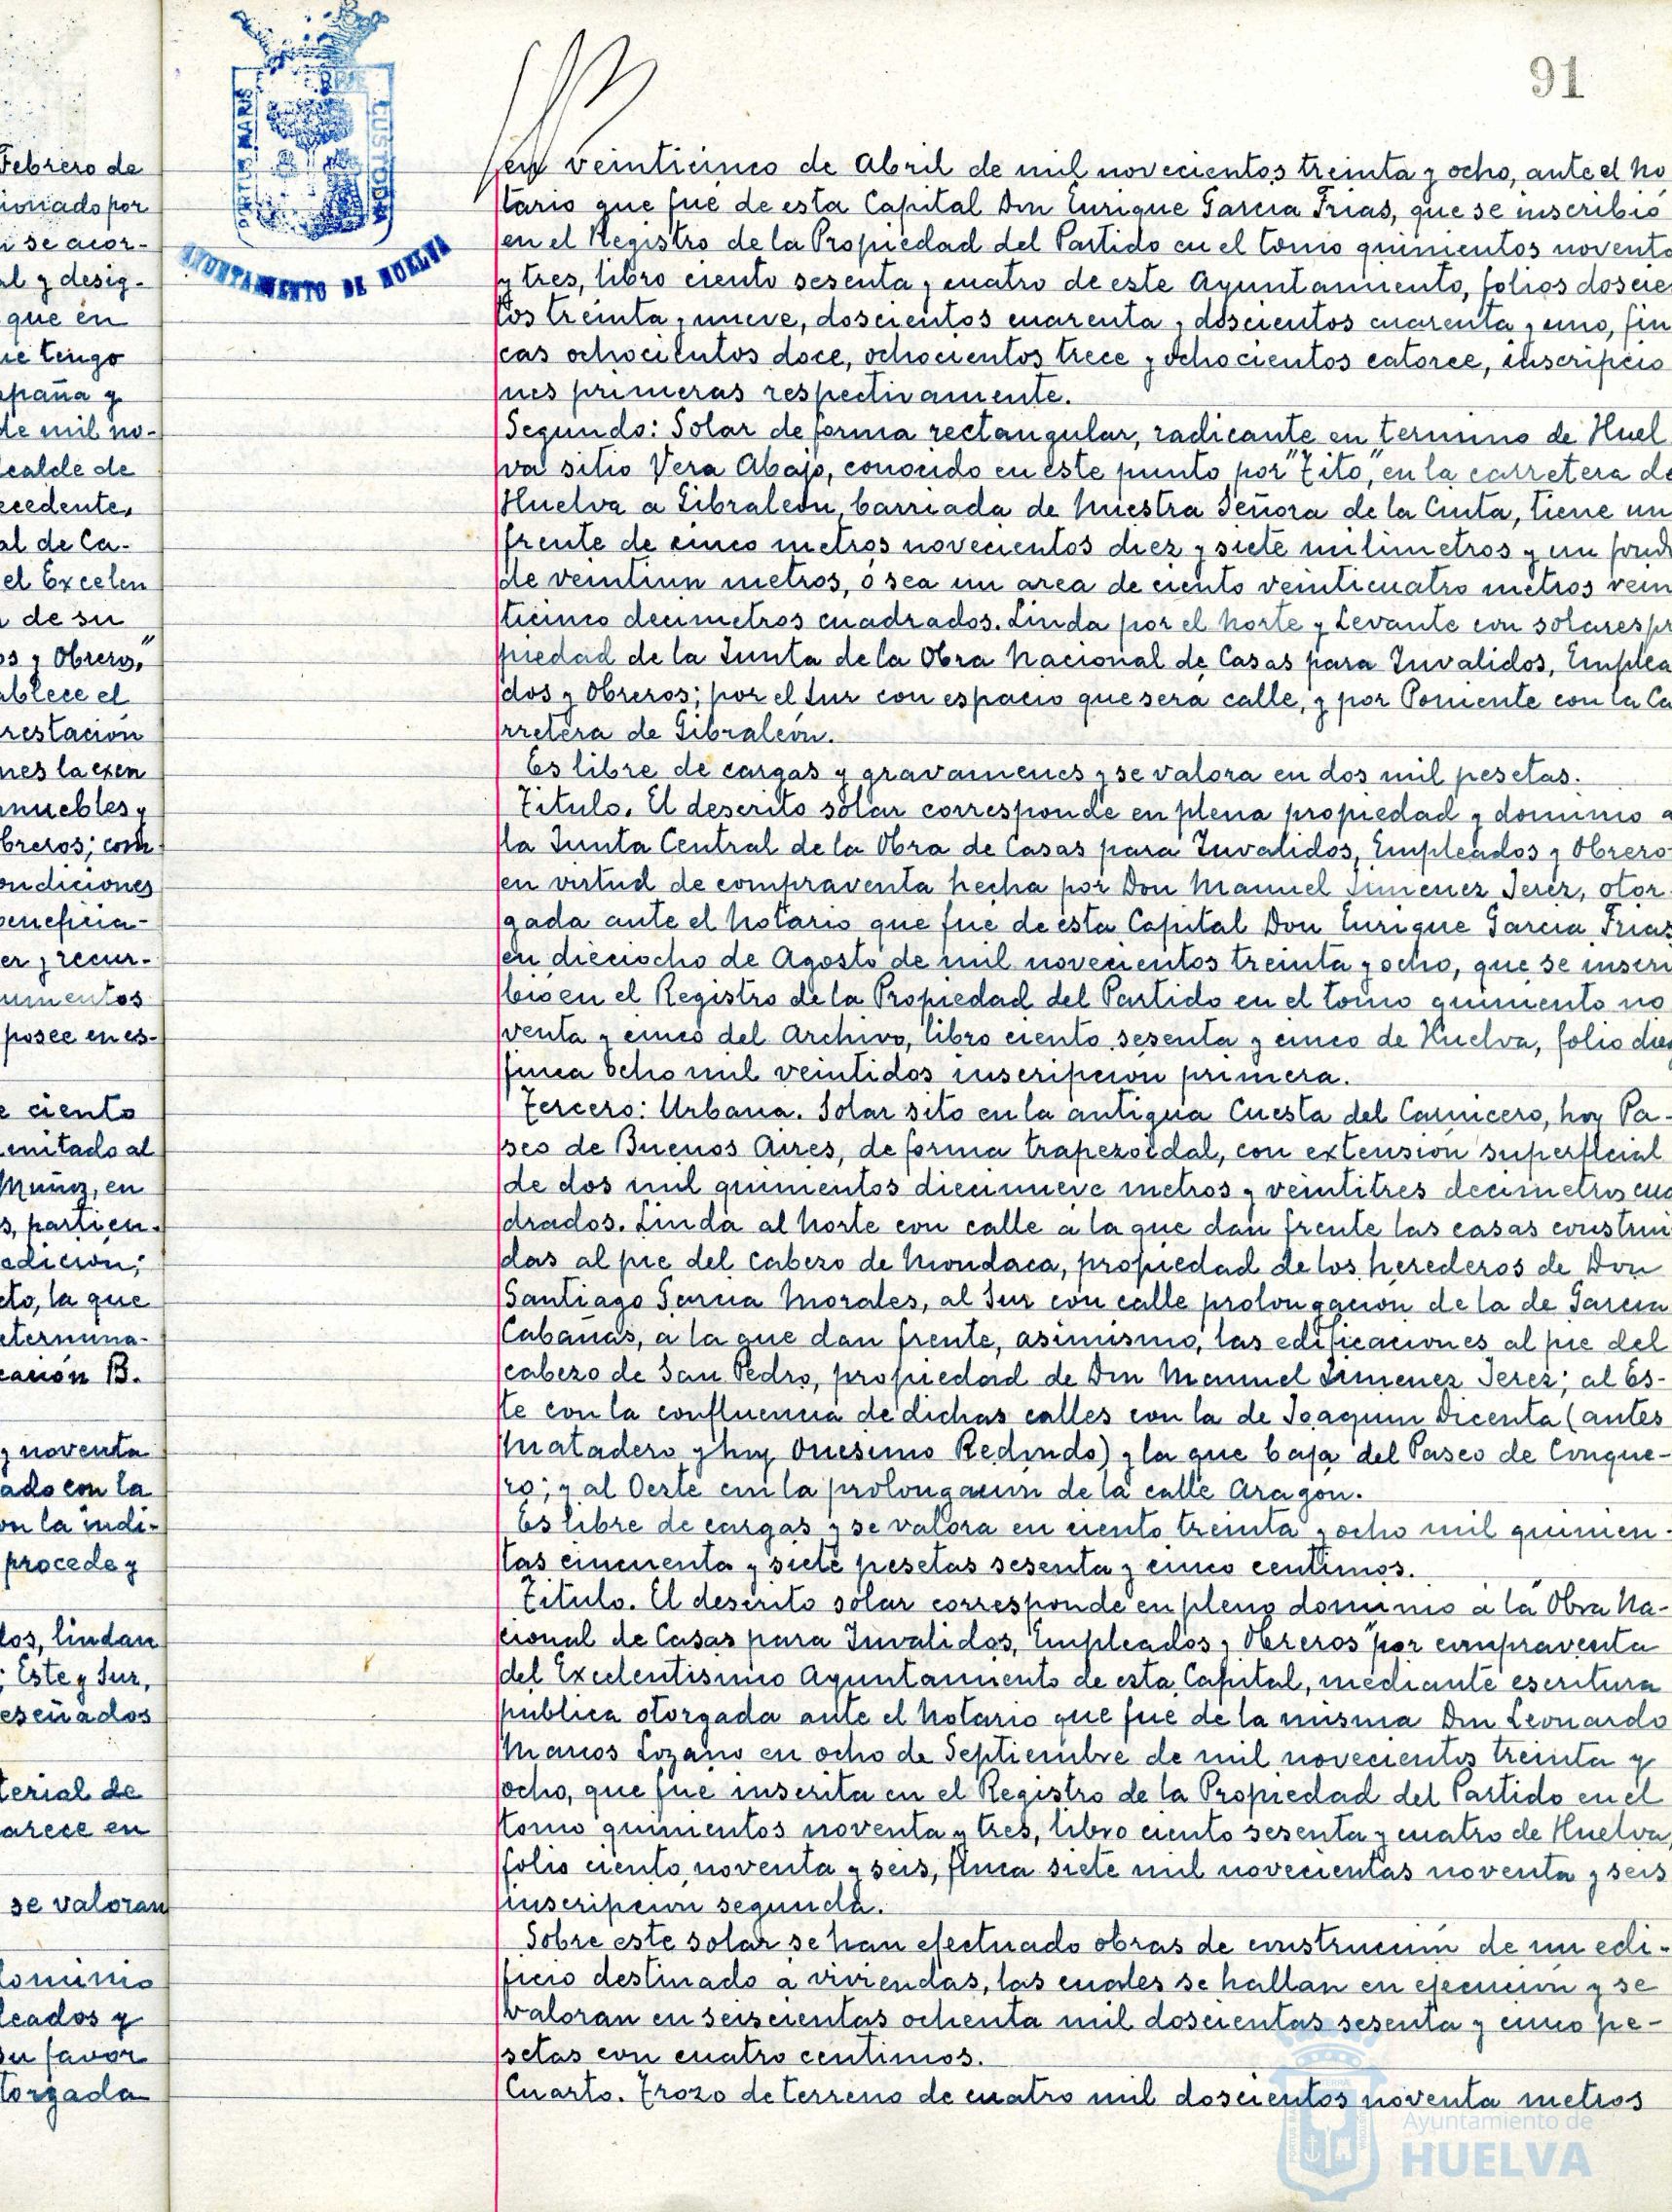 91
PORTUS MARIS
CUSTODIA
AYUNTAMIENTO DE HUELVA
Febrero de
ionado por
n se acor-
al y desig-
que en
ue tengo
spaña y
de mil no-
lcalde de
ecedente,
al de Ca-
el Excelen
n de su
os y Obreros,"
ablece el
restación
nes la exen
nmuebles y
breros; com
ondiciones
beneficia-
er y recur-
umentos
posee en es-
e ciento
enitado al
Muñoz, en
s, partien-
edición;
cto, la que
etermina-
cación B.
y noventa
ado con la
on la indi-
procede y
dos, lindan
; Este y Sur,
eseñados
terial de
arece en
se valoran
dominio
leados y
su favor
torgada
en veinticinco de Abril de mil novecientos treinta y ocho, ante el No
tario que fué de esta Capital Don Enrique Garcia Frias, que se inscribió
en el Registro de la Propiedad del Partido en el tomo quinientos noventa
y tres, libro ciento sesenta y cuatro de este Ayuntamiento, folios doscie
tos treinta y nueve, doscientos cuarenta y doscientos cuarenta y uno, fin
cas ochocientos doce, ochocientos trece y ochocientos catorce, inscripcio
nes primeras respectivamente.
Segundo: Solar de forma rectangular, radicante en termino de Huel
va sitio Vera Abajo, conocido en este punto por "Tito," en la carretera de
Huelva a Gibraleon, barriada de Nuestra Señora de la Cinta, tiene un
frente de cinco metros novecientos diez y siete milimetros y un fondo
de veintiun metros, ó sea un area de ciento veinticuatro metros vein
ticinco decimetros cuadrados. Linda por el Norte y Levante con solares pr
piedad de la Junta de la Obra Nacional de Casas para Invalidos, Emplea
dos y Obreros; por el Sur con espacio que será calle, y por Poniente con la Ca
rretera de Gibraleón.
Es libre de cargas y gravamenes y se valora en dos mil pesetas.
Titulo. El descrito solar corresponde en plena propiedad y dominio a
la Junta Central de la Obra de Casas para Invalidos, Empleados y Obrero
en virtud de compraventa hecha por Don Manuel Jimenez Jerez, otor-
gada ante el Notario que fué de esta Capital Don Enrique Garcia Frias
en dieciocho de Agosto de mil novecientos treinta y ocho, que se inscri
bio en el Registro de la Propiedad del Partido en el tomo quiniento no
venta y cinco del Archivo, libro ciento sesenta y cinco de Huelva, folio diez
finca ocho mil veintidos inscripción primera.
Tercero: Urbana. Solar sito en la antigua Cuesta del Carnicero, hoy Pa-
seo de Buenos Aires, de forma trapezoidal, con extensión superficial
de dos mil quinientos diecinueve metros y veintitres decimetros cua
drados. Linda al Norte con calle a la que dan frente las casas construi
das al pie del cabezo de Mondaca, propiedad de los herederos de Don
Santiago Garcia Morales, al Sur con calle prolongación de la de Garcia
Cabañas, a la que dan frente, asimismo, las edificaciones al pie del
cabezo de San Pedro, propiedad de Don Manuel Jimenez Jerez; al Es-
te con la confluencia de dichas calles con la de Joaquin Dicenta (antes
Matadero y hoy Onesimo Redondo) y la que baja del Paseo de Conque-
ro; y al Oeste con la prolongación de la calle Aragón.
Es libre de cargas y se valora en ciento treinta y ocho mil quinien-
tas cincuenta y siete pesetas sesenta y cinco centimos.
Titulo. El descrito solar corresponde en pleno dominio a la "Obra Na-
cional de Casas para Invalidos, Empleados y Obreros" por compraventa
del Excelentisimo Ayuntamiento de esta Capital, mediante escritura
publica otorgada ante el Notario que fue de la misma Don Leonardo
Manos Lozano en ocho de Septiembre de mil novecientos treinta y
ocho, que fué inscrita en el Registro de la Propiedad del Partido en el
tomo quinientos noventa y tres, libro ciento sesenta y cuatro de Huelva,
folio ciento noventa y seis, finca siete mil novecientas noventa y seis
inscripción segunda.
Sobre este solar se han efectuado obras de construcción de un edi-
ficio destinado a viviendas, las cuales se hallan en ejecución y se
valoran en seiscientas ochenta mil doscientas sesenta y cinco pe-
setas con cuatro centimos.
Cuarto. Trozo de terreno de cuatro mil doscientos noventa metros
Ayuntamiento de
HUELVA